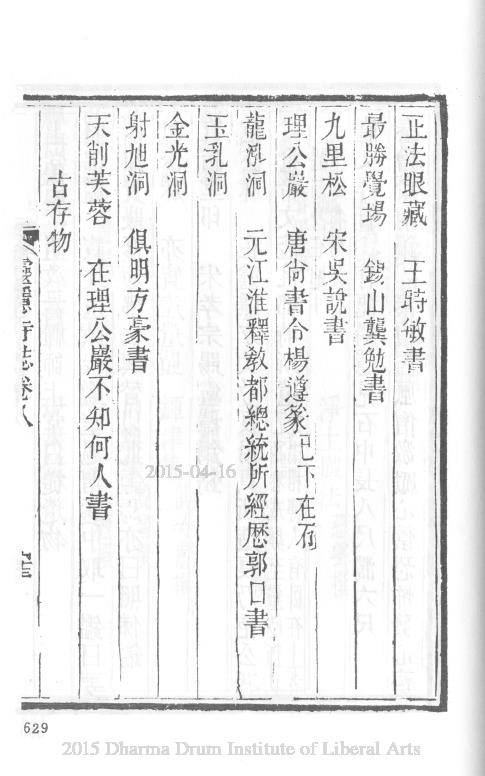 正法眼藏　王時敏書
最勝覺場　錫山龔勉書
九里松　宋吳說書
理公巖　唐尙書令楊遵篆已下在石
龍泓洞　元江淮釋敎都總統所經歷郭口書
玉乳洞
金光洞
射旭洞　俱明方豪書
天削芙蓉　在理公巖不知何人書
古存物
靈隱寺誌卷八
629
2015-04-16
2015 Dharma Drum Institute of Liberal Arts